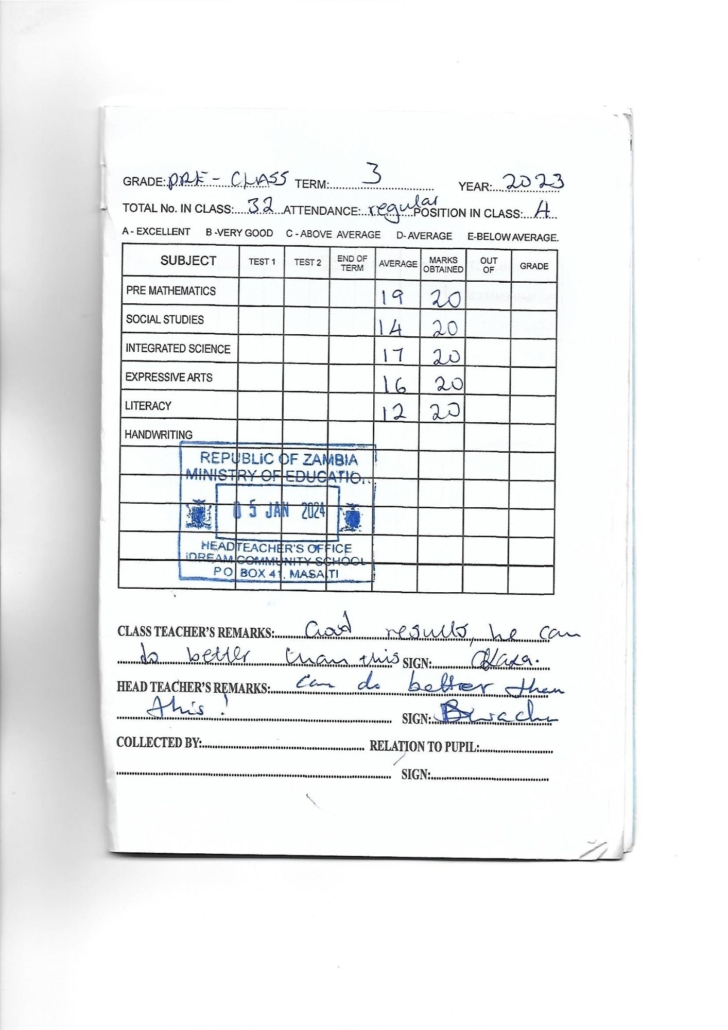 GRADE: PRE - CLASS TERM: 3 YEAR: 2023
TOTAL No. IN CLASS: 32 ATTENDANCE: regular POSITION IN CLASS: A
A - EXCELLENT B -VERY GOOD C - ABOVE AVERAGE D- AVERAGE E-BELOW AVERAGE.
SUBJECT TEST 1 TEST 2 END OF TERM AVERAGE MARKS OBTAINED OUT OF GRADE
PRE MATHEMATICS 19 20
SOCIAL STUDIES 14 20
INTEGRATED SCIENCE 17 20
EXPRESSIVE ARTS 16 20
LITERACY 12 20
HANDWRITING
REPUBLIC OF ZAMBIA
MINISTRY OF EDUCATIO..
05 JAN 2024
HEADTEACHER'S OFFICE
IDREAM COMMUNITY SCHOOL
P O BOX 41, MASAITI
CLASS TEACHER'S REMARKS: Good results, he can
do better than this SIGN:
HEAD TEACHER'S REMARKS: can do better than
this! SIGN:
COLLECTED BY: RELATION TO PUPIL:
SIGN: